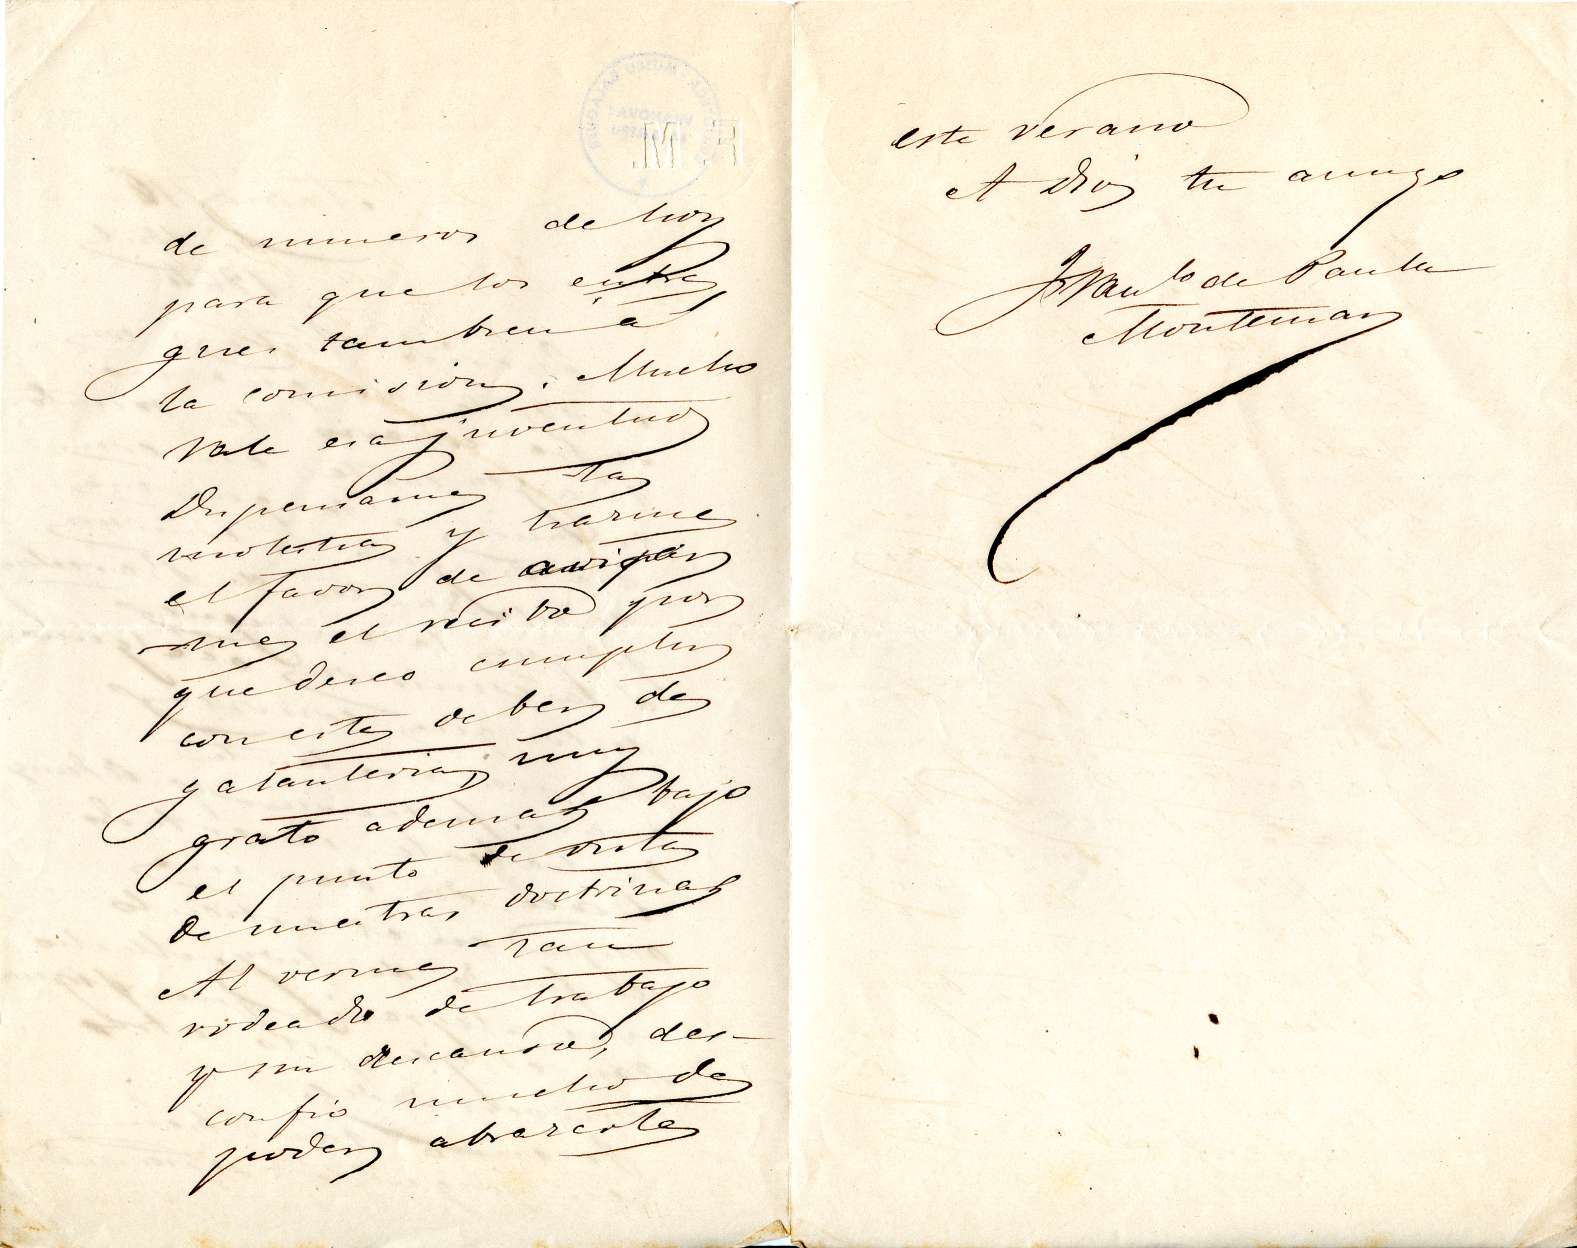 de numeros de hoy
para que los entre
gues tambien á
la comision. Mucho
vale esa juventud
Dispensame la
molestia y hazme
el favor de avisar
me el recibo por
que deseo cumplir
con este deber de
galanteria, muy
grato ademas bajo
el punto de vista
de nuestras doctrinas
Al verme tan
rodeado de trabajo
y sin descanso, des-
confio mucho de
poder abrazarte
este verano
A Dios tu amigo
Franco de Paula
Montemar